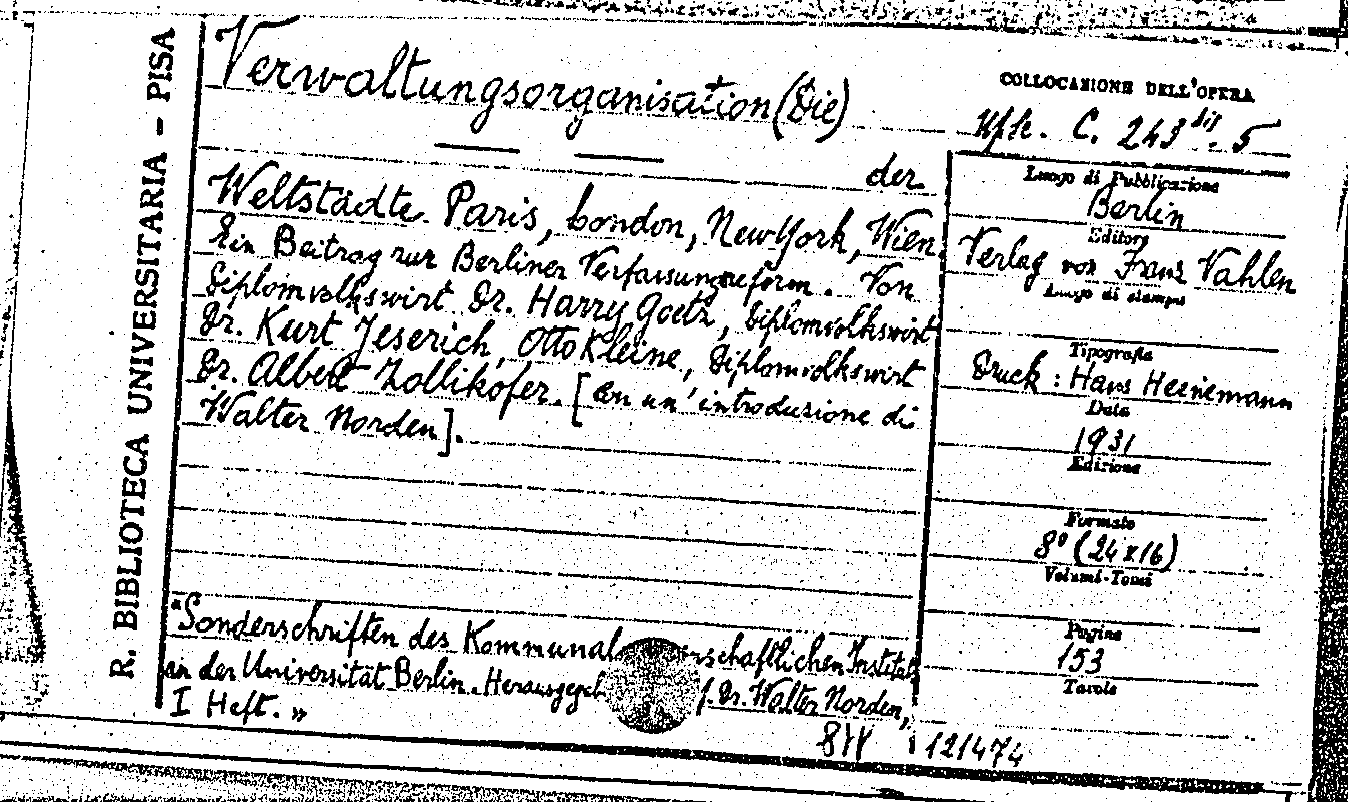 R. BIBLIOTECA UNIVERSITARIA – PISA
Verwaltungsorganisation (Die)
der
Weltstädte. Paris, London, New York, Wien.
Ein Beitrag zur Berliner Verfassungsreform. Von
Diplomvolkswirt Dr. Harry Goetz, Diplomvolkswirt
Dr. Kurt Jeserich, Otto Kleine, Diplomvolkswirt
Dr. Albert Zollikofer. [Con un' introduzione di
Walter Norden].
"Sonderschriften des Kommunal rschaftlichen Instituts
an der Universität Berlin. Herausgegeb f. Dr. Walter Norden,
I Heft. »
COLLOCAZIONE DELL'OPERA
C. 243 bis. 5
Luogo di Pubblicazione
Berlin
Editore
Verlag von Franz Vahlen
Luogo di stampa
Tipografia
Druck : Hans Heinemann
Data
1931
Edizione
Formato
8° (24x16)
Volumi-Tomi
Pagine
153
Tavole
121474